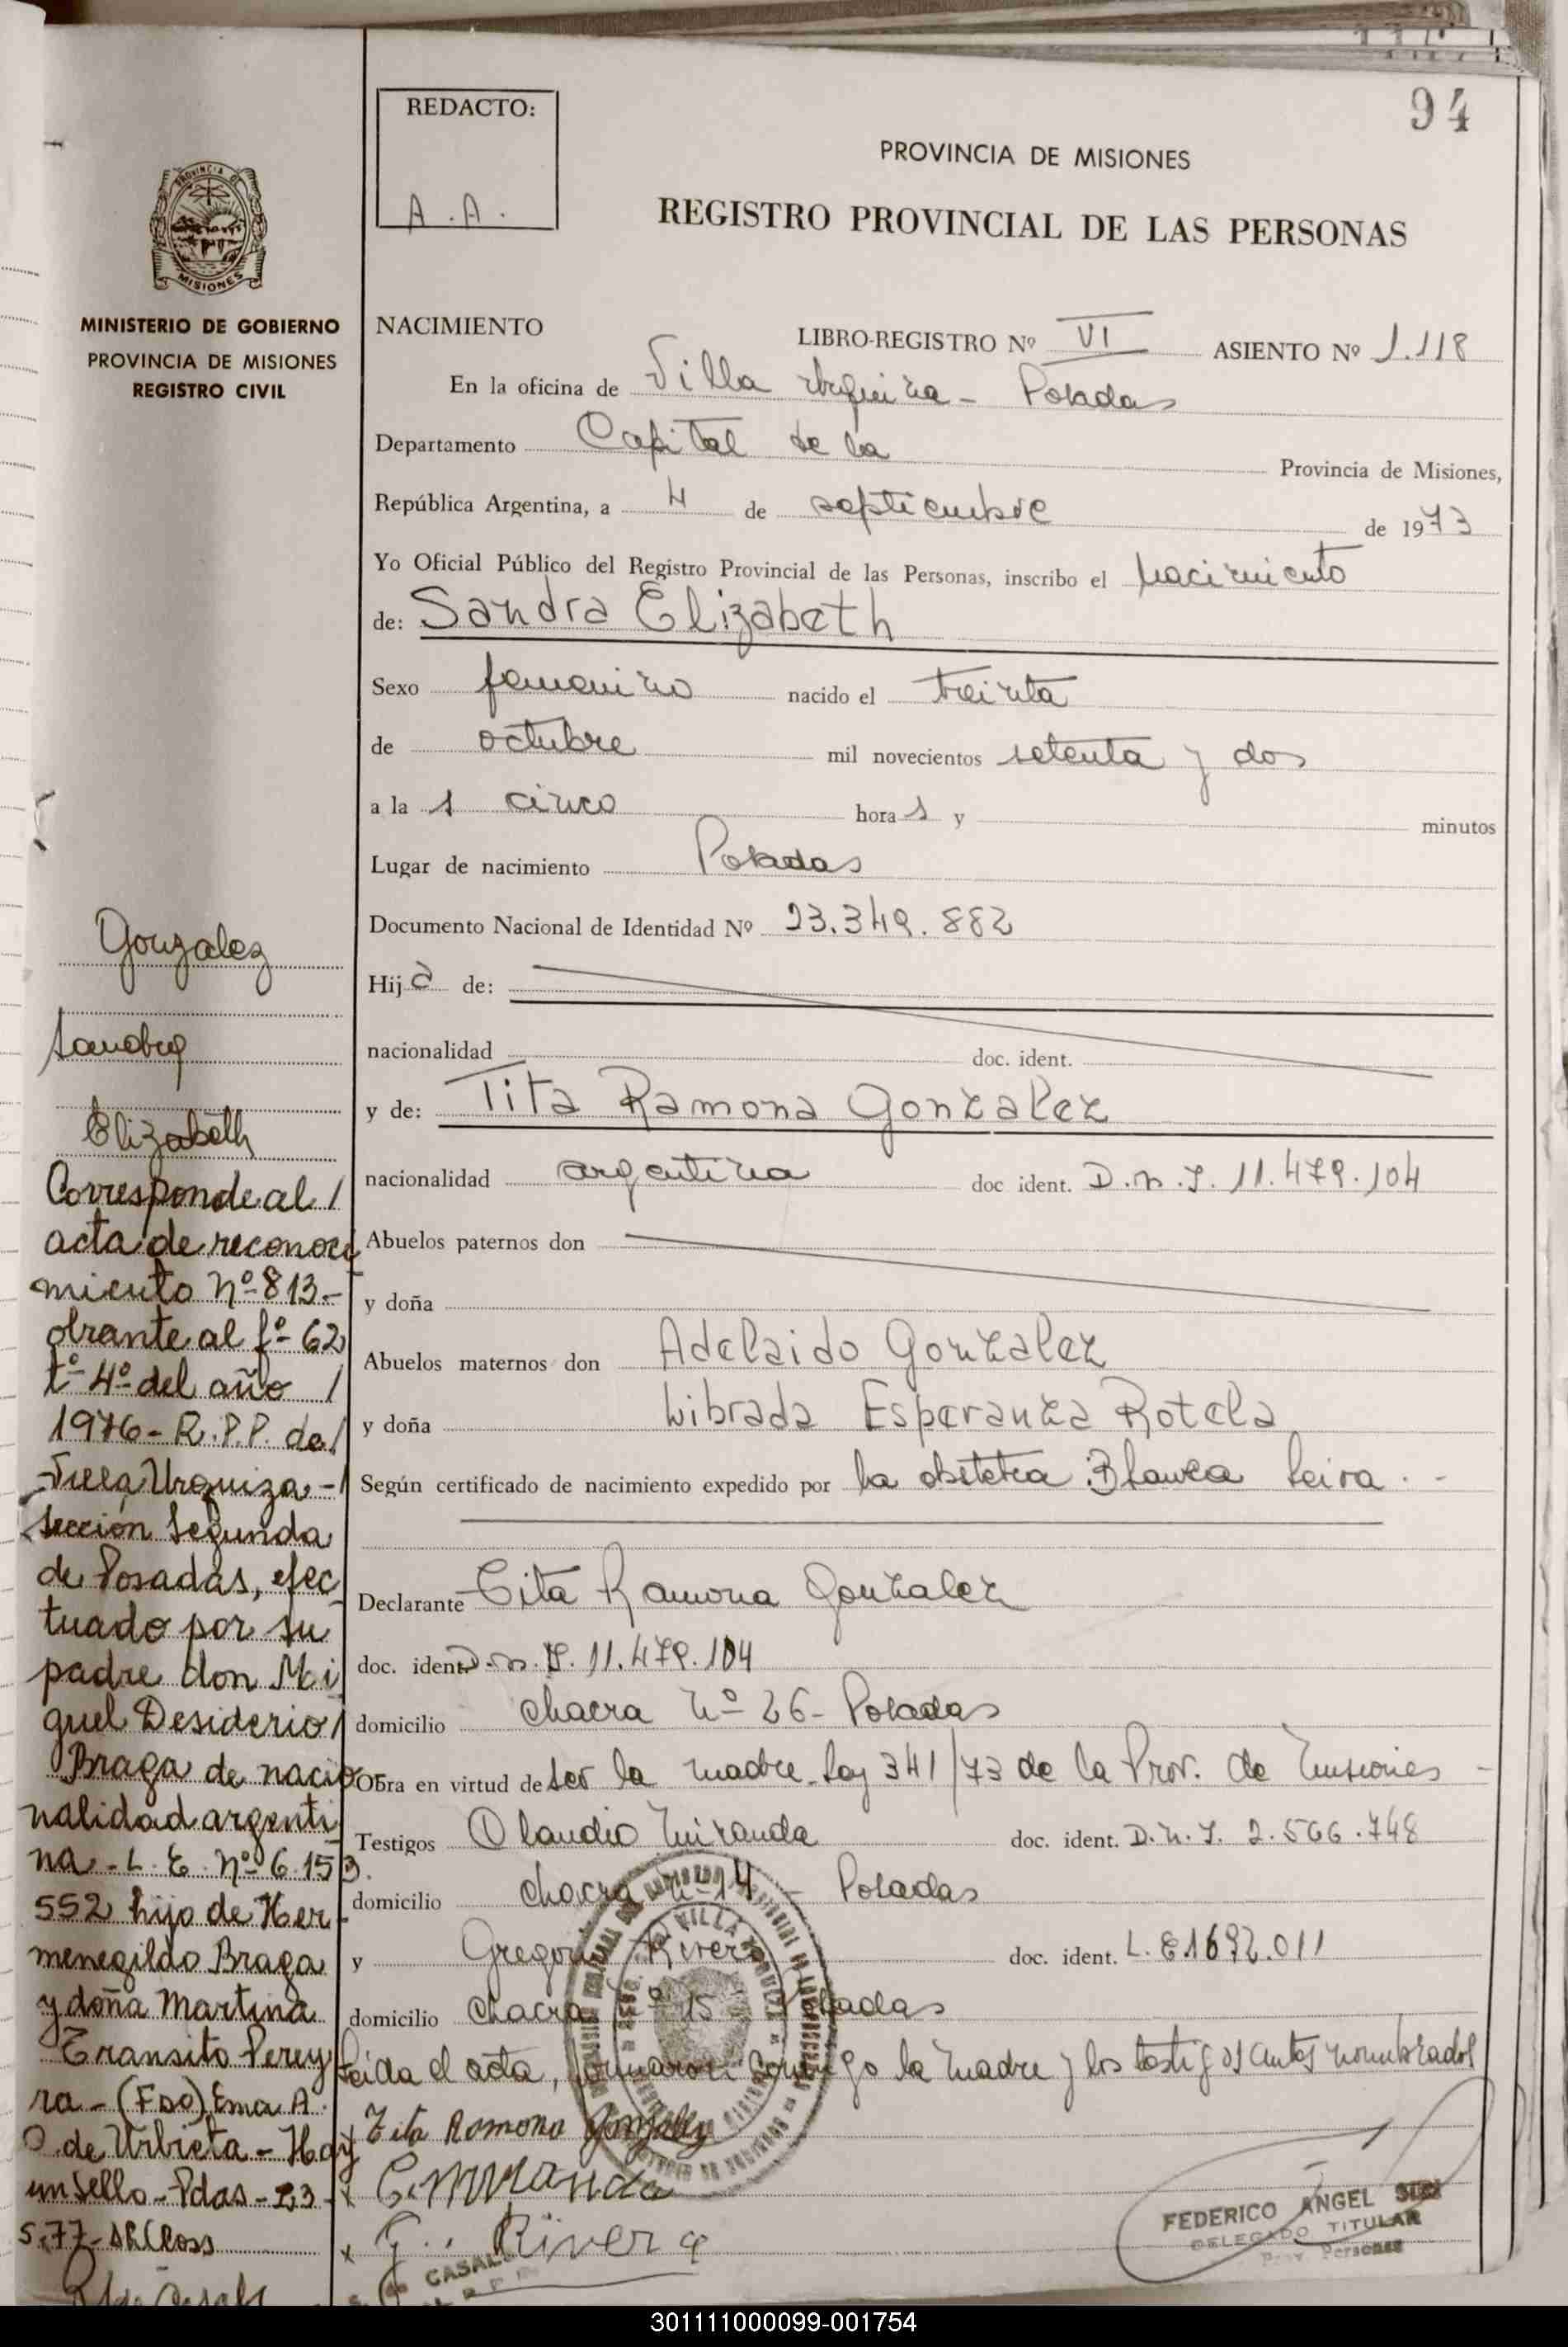 94
REDACTO:
A.A.
PROVINCIA DE MISIONES
REGISTRO PROVINCIAL DE LAS PERSONAS
PROVINCIA DE
MISIONES
MINISTERIO DE GOBIERNO
PROVINCIA DE MISIONES
REGISTRO CIVIL
NACIMIENTO LIBRO-REGISTRO Nº VI ASIENTO Nº 1.118
En la oficina de Villa Urquiza - Posadas
Departamento Capital de la Provincia de Misiones,
República Argentina, a 4 de septiembre de 1973
Yo Oficial Público del Registro Provincial de las Personas, inscribo el nacimiento
de: Sandra Elizabeth
Sexo femenino nacido el treinta
de octubre mil novecientos setenta y dos
a la s cinco hora s y minutos
Lugar de nacimiento Posadas
Documento Nacional de Identidad Nº 23.349.882
Hij a de:
nacionalidad doc. ident.
y de: Tita Ramona Gonzalez
nacionalidad argentina doc ident. D.n.I. 11.479.104
Abuelos paternos don
y doña
Abuelos maternos don Adelaido Gonzalez
y doña Librada Esperanza Rotela
Según certificado de nacimiento expedido por la obstetra Blanca Leiva.-
Declarante Tita Ramona Gonzalez
doc. ident. D.n.I. 11.479.104
domicilio chacra nº 26 - Posadas
Obra en virtud de ser la madre Ley 341/73 de la Prov. de Misiones -
Testigos Claudio Miranda doc. ident. D.N.I. 2.566.748
domicilio chacra nº 14 - Posadas
y Gregorio Rivero doc. ident. L.E. 1692.011
domicilio chacra nº 15 Posadas
Leida el acta, firmaron conmigo la madre y los testigos antes nombrados
Tita Ramona Gonzalez
x C. Miranda
x G. Rivero
FEDERICO ANGEL
DELEGADO TITULAR
Prov. Personas
CASAL
Gonzalez
Sandra
Elizabeth
Corresponde al /
acta de reconoci
miento nº 813.-
obrante al fº 62
tº 4º del año /
1976 - R.P.P. de /
Villa Urquiza - /
Sección Segunda
de Posadas, efec
tuado por su
padre don Mi
guel Desiderio /
Braga de nacio
nalidad argenti
na - L. E. nº 6.153.
552 hijo de Her
menegildo Braga
y doña Martina
Transito Perey
ra - (Fdo) Ema A.
O. de Urbieta - Hay
un sello - Pdas - 23 -
5.77 -
301111000099-001754